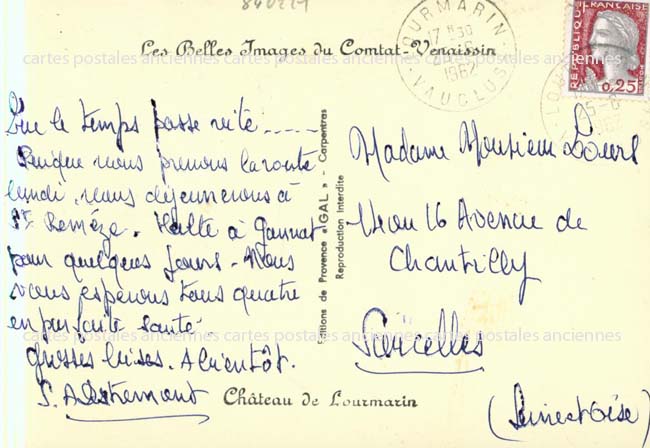 840227
Les Belles Images du Comtat-Venaissin
Que le temps passe vite .....
Puisque nous prenons la route
lundi, nous déjeunerons à
St Remèze. Halte à Gannat
pour quelques jours - Nous
vous espérons tous quatre
en parfaite santé.
grosses bises. A bientôt.
Madame Monsieur
16 Avenue de
Chantilly
Sarcelles
(Seine et Oise)
Editions de Provence «IGAL» - Carpentras
Reproduction Interdite
Château de Lourmarin
LOURMARIN
17 H30
1962
VAUCLUSE
REPUBLIQUE FRANÇAISE
0,25
cartes postales anciennes cartes postales anciennes cartes postales anciennes
cartes postales anciennes cartes postales anciennes cartes postales anciennes